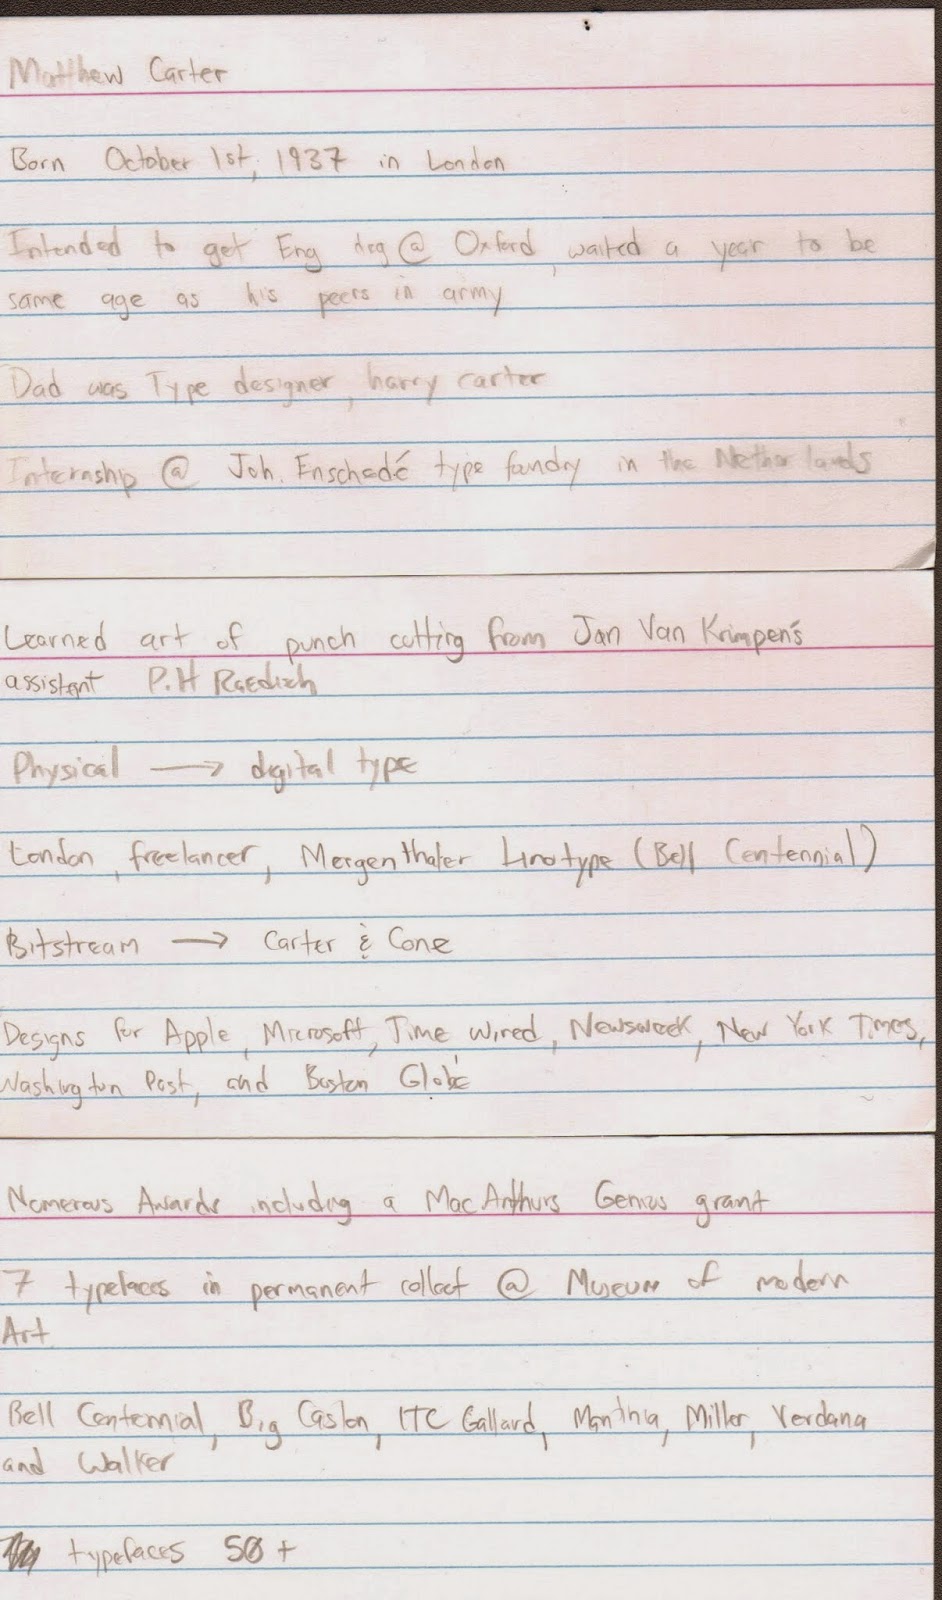 Matthew Carter
Born October 1st, 1937 in London
Intended to get Eng deg @ Oxford, waited a year to be
same age as his peers in army
Dad was Type designer, harry carter
Internship @ Joh. Enschedé type foundry in the Netherlands
Learned art of punch cutting from Jan Van Krimpen's
assistent P.H Raedisch
Physical → digital type
London, freelancer, Mergenthaler Linotype (Bell Centennial)
Bitstream → Carter & Cone
Designs for Apple, Microsoft, Time Wired, Newsweek, New York Times,
Washington Post, and Boston Globe
Numerous Awards including a MacArthurs Genius grant
7 typefaces in permanent collect @ Museum of modern
Art
Bell Centennial, Big Caslon, ITC Gallard, Manthia, Miller, Verdana
and Walker
typefaces 50+